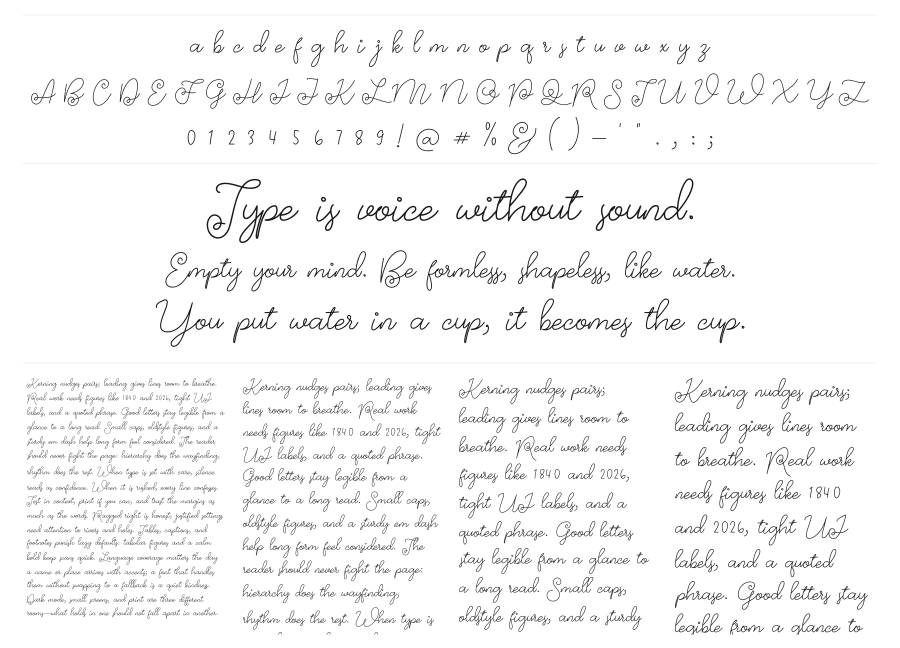 a b c d e f g h i j k l m n o p q r s t u v w x y z
A B C D E F G H I J K L M N O P Q R S T U V W X Y Z
0 1 2 3 4 5 6 7 8 9 ! @ # % & ( ) – ' " . , : ;
Type is voice without sound.
Empty your mind. Be formless, shapeless, like water.
You put water in a cup, it becomes the cup.
Kerning nudges pairs; leading gives lines room to breathe.
Real work needs figures like 1840 and 2026, tight UI
labels, and a quoted phrase. Good letters stay legible from a
glance to a long read. Small caps, oldstyle figures, and a
sturdy em dash help long form feel considered. The reader
should never fight the page: hierarchy does the wayfinding,
rhythm does the rest. When type is set with care, silence
reads as confidence. When it is rushed, every line confesses.
Test in context, print if you can, and trust the margins as
much as the words. Ragged right is honest; justified setting
need attention to rivers and holes. Tables, captions, and
footnotes punish lazy defaults: tabular figures and a calm
bold keep pans quick. Language coverage matters the day
a name or place arrives with accents; a font that handles
them without swapping to a fallback is a quiet kindness.
Dark mode, small screens, and print are three different
rooms—what holds in one should not fall apart in another.
Kerning nudges pairs; leading gives
lines room to breathe. Real work
needs figures like 1840 and 2026, tight
UI labels, and a quoted phrase.
Good letters stay legible from a
glance to a long read. Small caps,
oldstyle figures, and a sturdy em dash
help long form feel considered. The
reader should never fight the page:
hierarchy does the wayfinding,
rhythm does the rest. When type is
Kerning nudges pairs;
leading gives lines room to
breathe. Real work needs
figures like 1840 and 2026,
tight UI labels, and a
quoted phrase. Good letters
stay legible from a glance to
a long read. Small caps,
oldstyle figures, and a sturdy
Kerning nudges pairs;
leading gives lines room
to breathe. Real work
needs figures like 1840
and 2026, tight UI
labels, and a quoted
phrase. Good letters stay
legible from a glance to